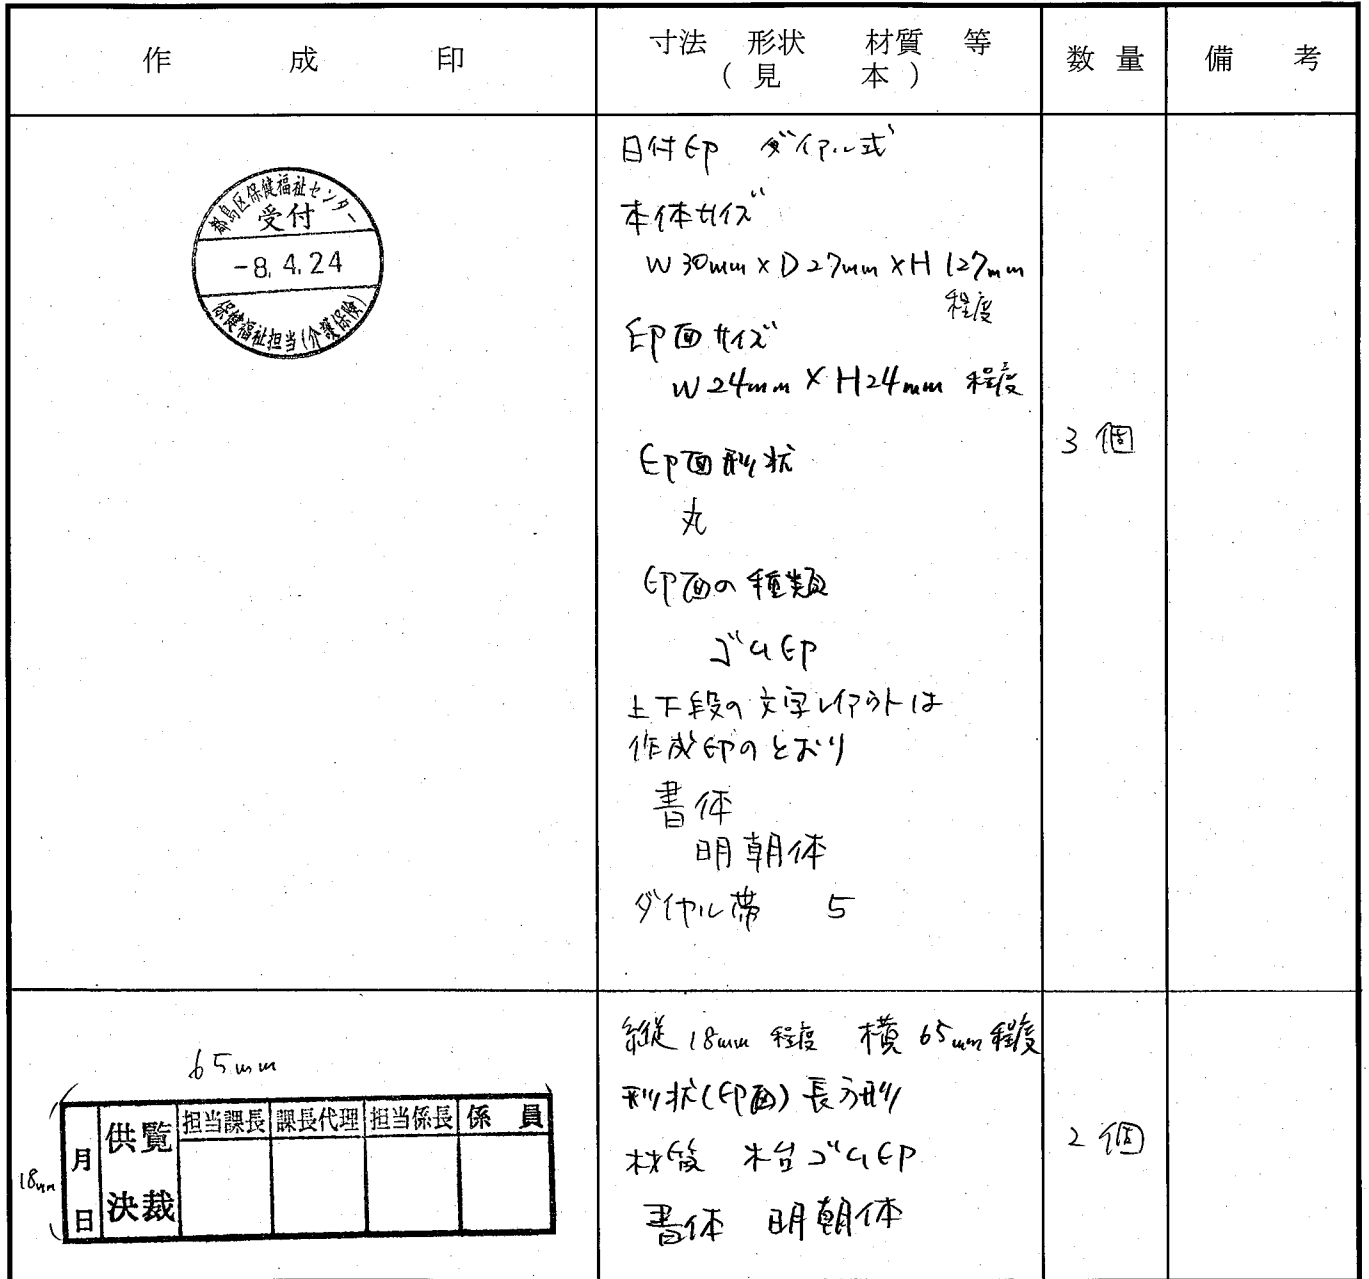 作 成 印
寸法 形状 材質 等
(見 本)
数 量
備 考
都島区保健福祉センター
受付
-8.4.24
保健福祉担当(介護保険)
日付印 ダイアル式
本体サイズ
W30mm×D27mm×H127mm
程度
印面サイズ
W24mm×H24mm 程度
印面形状
丸
印面の種類
ゴム印
上下段の文字レイアウトは
作成印のとおり
書体
明朝体
ダイヤル帯 5
3個
65mm
18mm
月
日
供覧
決裁
担当課長
課長代理
担当係長
係 員
縦18mm 程度 横65mm程度
形状(印面)長方形
材質 木台ゴム印
書体 明朝体
2個